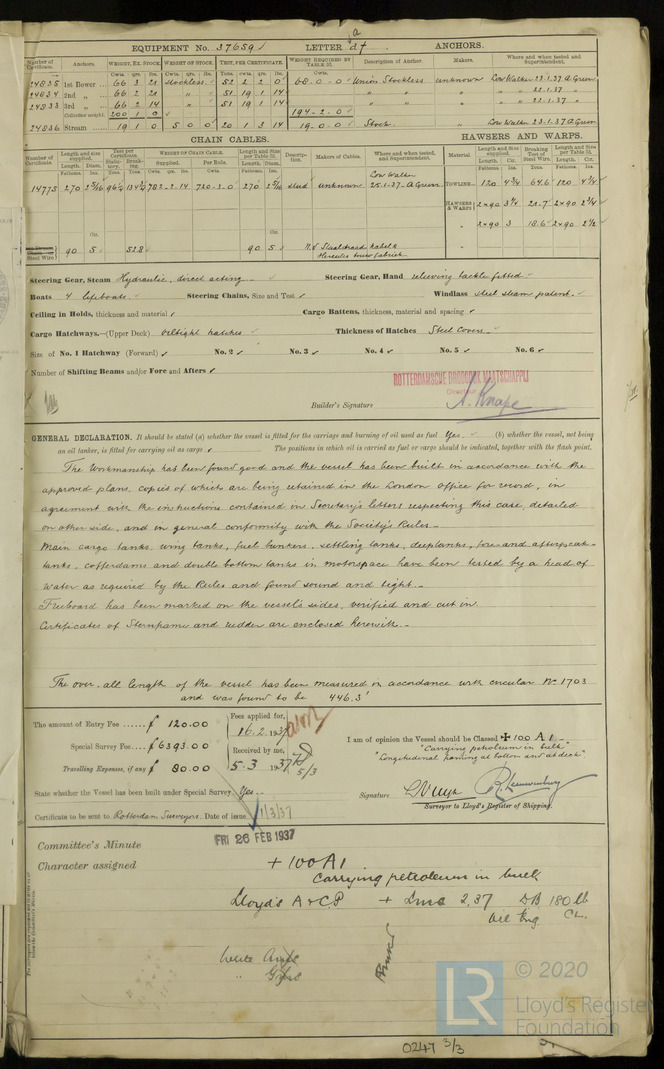 EQUIPMENT No. 37659 LETTER df a ANCHORS.
Number of Certificate. Anchors. WEIGHT, EX. STOCK. WEIGHT OF STOCK. TEST, PER CERTIFICATE. WEIGHT REQUIRED BY TABLE 31. Description of Anchor. Makers. Where and when tested and Superintendent.
24835 1st Bower 66 3 21 Stockless 52 2 2 0 68-0-0 Union Stockless unknown Low Walker 23.1.37 A Green
24834 2nd " 66 2 21 " 51 19 1 14 " " " 22.1.37 "
24833 3rd " 66 2 14 " 51 19 1 14 " " " 22.1.37 "
Collective weight. 200 1 0 194-2-0
24836 Stream 19 1 0 5 0 0 20 1 3 14 19-0-0 Stock " Low Walker 23.1.37 A Green
CHAIN CABLES. HAWSERS AND WARPS.
Number of Certificate. Length and size supplied. Test per Certificate WEIGHT OF CHAIN CABLE. Supplied. Per Rule. Length and Size per Table 31. Description. Makers of Cables. Where and when tested, and Superintendent. Material Length and Size supplied. Breaking Test of Steel Wire. Length and Size per Table 31.
14773 270 2 5/16 783-2-14 720-2-0 270 2 5/16 stud unknown Low Walker 25.1.37-A Green TOWLINE 120 4 3/4 64.6 120 4 3/4
HAWSERS & WARPS 2x90 3 1/4 21.7 2x90 2 3/4
" 2x90 3 18.6 2x90 2 1/2
Steel Wire 90 5 52.8 90 5 N.V. Staaldraad kabel & Hercules touw fabriek
Steering Gear, Steam Hydraulic, direct acting Steering Gear, Hand relieving tackle fitted
Boats 4 lifeboats Steering Chains, Size and Test Windlass steel steam patent.
Ceiling in Holds, thickness and material Cargo Battens, thickness, material and spacing
Cargo Hatchways.—(Upper Deck) oiltight hatches Thickness of Hatches Steel Covers
Size of No. 1 Hatchway (Forward) No. 2 No. 3 No. 4 No. 5 No. 6
Number of Shifting Beams and/or Fore and Afters
ROTTERDAMSCHE DROOGDOK MAATSCHAPPIJ
Builder's Signature
GENERAL DECLARATION. It should be stated (a) whether the vessel is fitted for the carriage and burning of oil used as fuel Yes. (b) whether the vessel, not being
an oil tanker, is fitted for carrying oil as cargo The positions in which oil is carried as fuel or cargo should be indicated, together with the flash point.
The Workmanship has been found good and the vessel has been built in accordance with the
approved plans, copies of which are being retained in the London office for record, in
agreement with the instructions contained in Secretary's letters respecting this case, detailed
on other side, and in general conformity with the Society's Rules.
Main cargo tanks, wing tanks, fuel bunkers, settling tanks, deeptanks, fore- and afterpeak-
tanks, cofferdams and double bottom tanks in motorspace have been tested by a head of
water as required by the Rules and found sound and tight.
Freeboard has been marked on the vessel's sides, verified and cut in.
Certificates of Sternframe and rudder are enclosed herewith.
The over-all length of the vessel has been measured in accordance with circular No 1703
and was found to be 446.3'
The amount of Entry Fee ...... £ 120.00 Fees applied for, 16.2.1937
Special Survey Fee.... £ 6393.00 Received by me, 5.3 1937 5/3
Travelling Expenses, if any £ 80.00
I am of opinion the Vessel should be Classed +100 A1
"Carrying petroleum in bulk"
"Longitudinal framing at bottom and at deck"
State whether the Vessel has been built under Special Survey Yes
Signature
Surveyor to Lloyd's Register of Shipping.
Certificate to be sent to Rotterdam Surveyors. Date of issue 1/3/37
FRI 26 FEB 1937
Committee's Minute
Character assigned +100A1
Carrying petroleum in bulk
Lloyd's A & CP + Lmc 2,37 DB 180 lb
Oil Eng. CL.
Write
© 2020
LR
Lloyd's Register
Foundation
0247 3/3